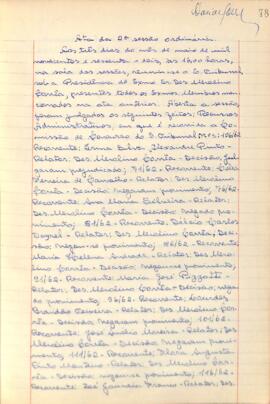 Ata da 2ª sessão ordinária.
Aos três dias do mês de maio de mil
novecentos e sessenta e dois, às 16,00 horas,
na sala das sessões, reuniu-se o E. Tribunal
sob a Presidência do Exmo Sr. Des. Merolino
Corrêa, presentes todos os Exmos Membros men-
cionados na ata anterior. Aberta a sessão,
foram julgados os seguintes feitos: Recursos
Administrativos, em que é recorrida a Co-
missão de Concurso do E. Tribunal Nºs: 106/62
Recorrente: Erma Silva, Alexandre Pinto -
Relator: Des. Merolino Corrêa - Decisão: Jul-
garam prejudicado;
Pereira de Carvalho - Relator: Des. Merolino
Corrêa - Decisão: Negaram provimento; 76/62
Recorrente: Ana Maria Silveira - Relator:
Des. Merolino Corrêa - Decisão: Negado pro-
vimento; 81/62 - Recorrente: Délcio Carlos
- Relator: Des. Merolino Corrêa; Deci-
são: Negou-se provimento; 86/62 - Recorrente:
Maria Andrade - Relator: Des. Mero-
lino Corrêa - Decisão: negou-se provimento;
91/62 - Recorrente: Maria José
- Relator: Des. Merolino Corrêa - Decisão: ne-
gado provimento; 96/62 - Recorrente: Lourdes
Brandão Teixeira - Relator: Des. Merolino Cor-
rêa - Decisão: Negaram provimento; 101/62 -
Recorrente: José Moreira - Relator:
Des. Merolino Corrêa - Decisão: Negaram pro-
vimento; 111/62 - Recorrente: Maria Augusta
Pinto - Relator: Des. Merolino Cor-
rêa - Decisão: negou-se provimento; 116/62 -
Recorrente: Franco - Relator: Des.